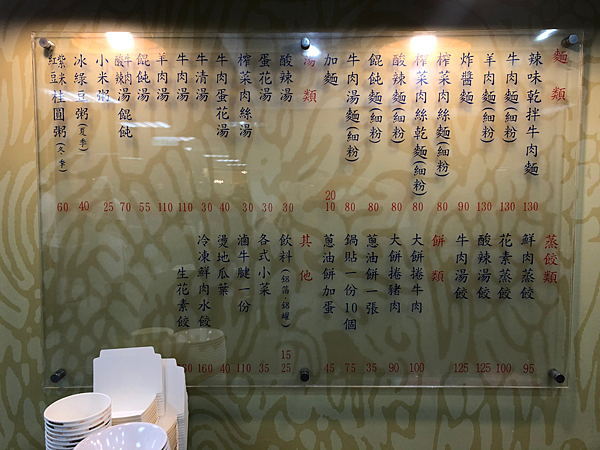 麵類
辣味乾拌牛肉麵 130
牛肉麵(細粉) 130
羊肉麵(細粉) 130
炸醬麵 90
榨菜肉絲麵(細粉) 80
榨菜肉絲乾麵(細粉) 80
酸辣麵(細粉) 80
餛飩麵(細粉) 80
牛肉湯麵(細粉) 80
加麵 20 10
湯類
酸辣湯 30
蛋花湯 30
榨菜肉絲湯 30
牛肉蛋花湯 40
牛清湯 30
牛肉湯 110
羊肉湯 110
餛飩湯 55
酸辣湯餛飩 牛肉 70
小米粥 25
冰綠豆粥(夏季) 40
紅豆 紫米 桂圓粥(冬季) 60
蒸餃類
鮮肉蒸餃 95
花素蒸餃 100
酸辣湯餃 125
牛肉湯餃 125
餅類
大餅捲牛肉 100
大餅捲豬肉 90
蔥油餅一張 35
鍋貼一份10個 75
蔥油餅加蛋 45
其他
飲料(鋁箔·鋁罐) 15 25
各式小菜 35
滷牛腱一份 110
燙地瓜葉 40
冷凍鮮肉水餃 160
生花素餃